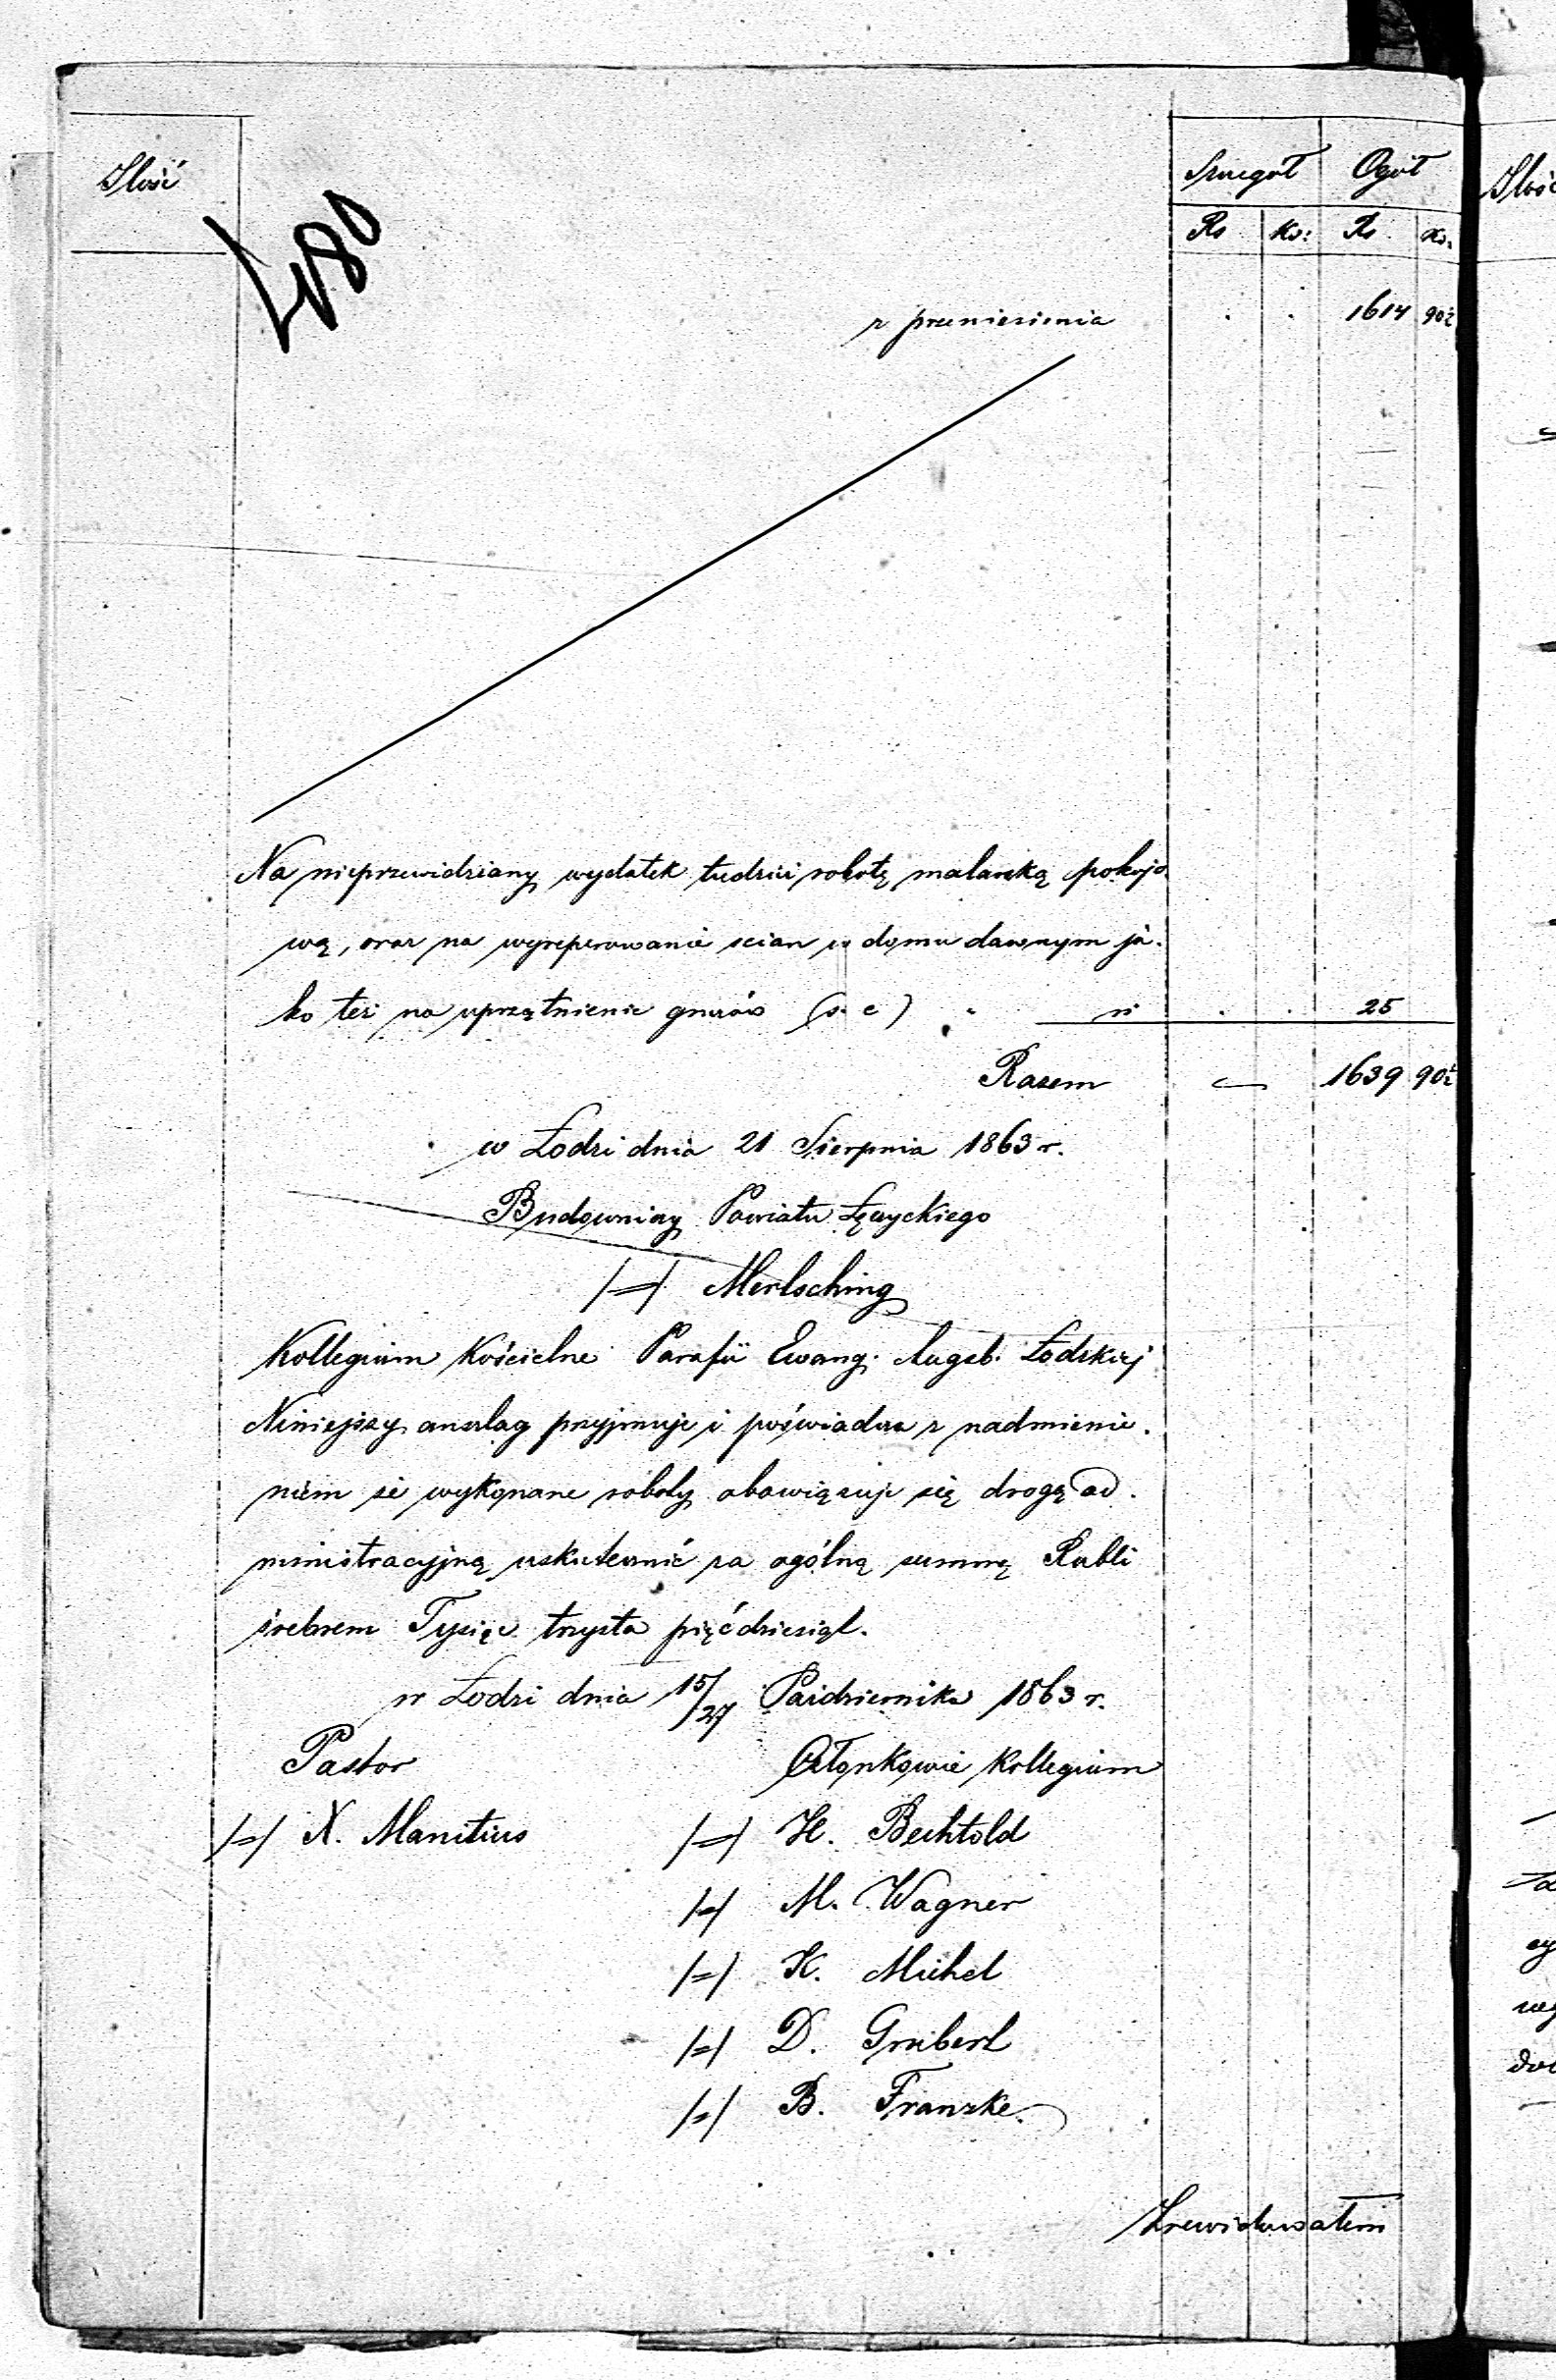 Ilość
480
Szczegół Ogół
Rs Ko: Rs Ko.
z przeniesienia . . 1614 90½
Na nieprzewidziany wydatek tudzież robotę malarską pokojo-
wą, oraz na wyreperowanie scian w domu dawnym ja-
ko też na uprzątnienie gruzów (s. c) " n . . 25
Razem — 1639 90½
w Łodzi dnia 21 Sierpnia 1863 r.
Budowniczy Powiatu Łęczyckiego
/=/ Mertsching
Kollegium Kościelne Parafii Ewang. Augsb. Łodzkiej
Niniejszy anszlag przyjmuje i poświadcza z nadmienie-
niem że wykonane roboty obowiązuje się drogą ad-
ministracyjną uskutecznić za ogólną summę Rubli
śrebrem Tysiąc trzysta pięćdziesiąt.
w Łodzi dnia 15/27 Października 1863 r.
Pastor Członkowie Kollegium
/=/ X. Manitius /=/ H. Bechtold
/=/ M. Wagner
/=/ K. Michel
/=/ D.
/=/ B. Franzke.
Zrewidowałem